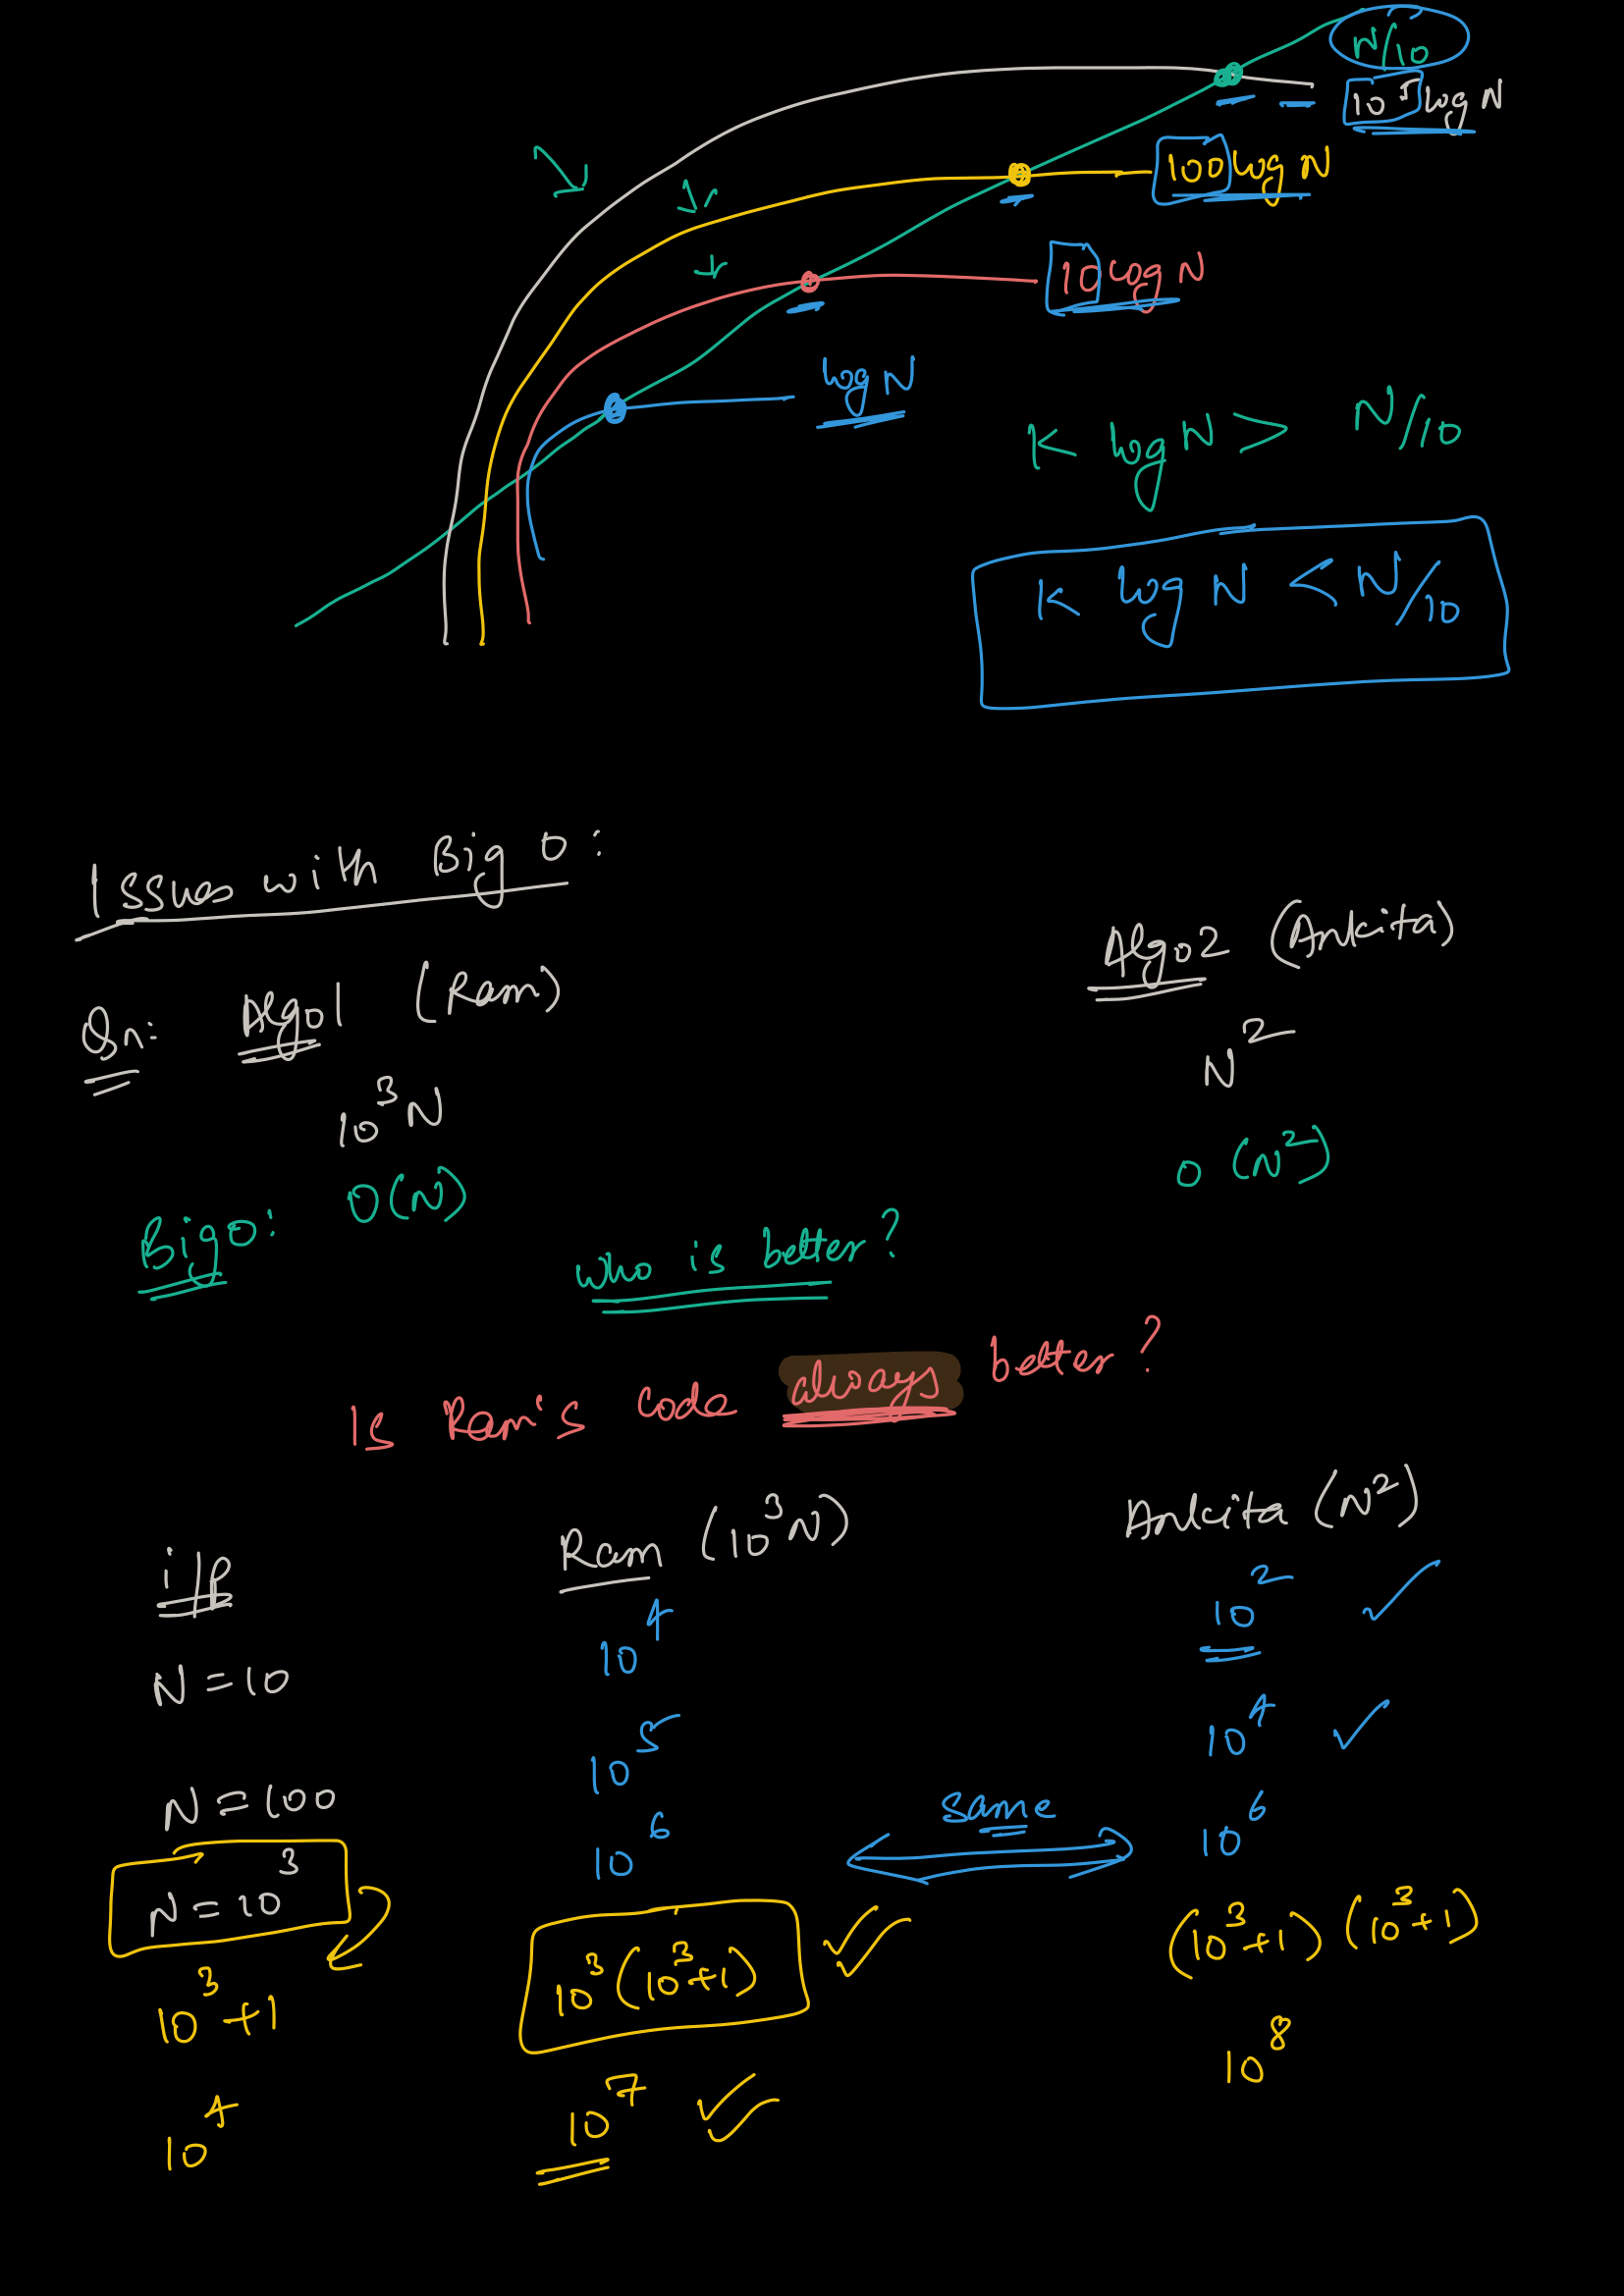 N/10
10⁵ log N
100 log N
10 log N
log N
K log N > N/10
K log N < N/10
Issues with Big O:
Qn: Algo1 (Ram) Algo2 (Ankita)
10³N N²
Big O: O(N) O(N²)
who is better?
Is Ram's code always better?
i/p Ram (10³N) Ankita (N²)
N = 10 10⁴ 10² ✓
N = 100 10⁵ 10⁴ ✓
N = 10³ 10⁶ same 10⁶
10³+1 10³(10³+1) ✓✓ (10³+1)(10³+1)
10⁴ 10⁷ ✓✓ 10⁸